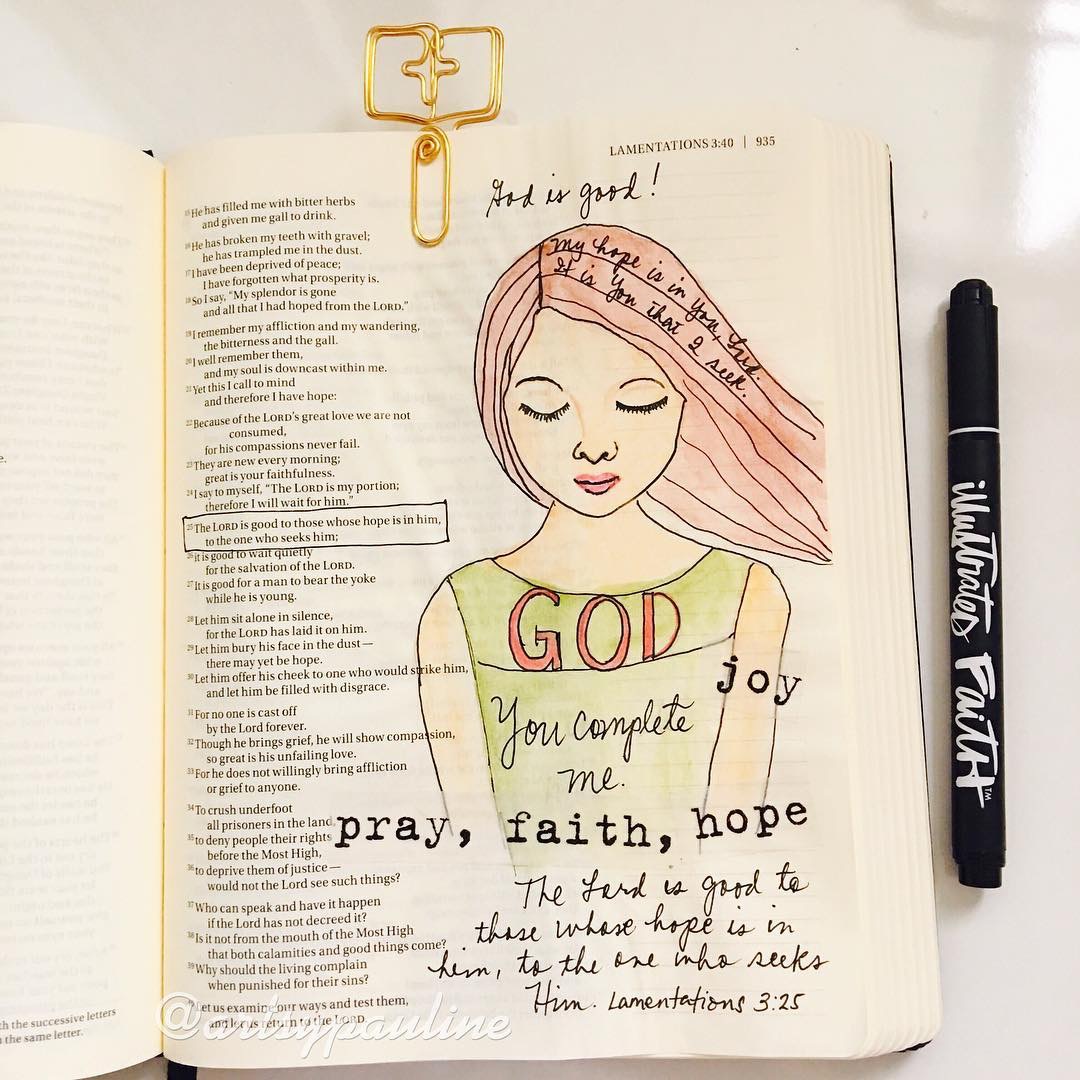 LAMENTATIONS 3:40 | 935
God is good!
15 He has filled me with bitter herbs
and given me gall to drink.
16 He has broken my teeth with gravel;
he has trampled me in the dust.
17 I have been deprived of peace;
I have forgotten what prosperity is.
18 So I say, "My splendor is gone
and all that I had hoped from the LORD."
19 I remember my affliction and my wandering,
the bitterness and the gall.
20 I well remember them,
and my soul is downcast within me.
21 Yet this I call to mind
and therefore I have hope:
22 Because of the LORD's great love we are not
consumed,
for his compassions never fail.
23 They are new every morning;
great is your faithfulness.
24 I say to myself, "The LORD is my portion;
therefore I will wait for him."
25 The LORD is good to those whose hope is in him,
to the one who seeks him;
26 it is good to wait quietly
for the salvation of the LORD.
27 It is good for a man to bear the yoke
while he is young.
28 Let him sit alone in silence,
for the LORD has laid it on him.
29 Let him bury his face in the dust—
there may yet be hope.
30 Let him offer his cheek to one who would strike him,
and let him be filled with disgrace.
31 For no one is cast off
by the Lord forever.
32 Though he brings grief, he will show compassion,
so great is his unfailing love.
33 For he does not willingly bring affliction
or grief to anyone.
34 To crush underfoot
all prisoners in the land,
35 to deny people their rights
before the Most High,
36 to deprive them of justice—
would not the Lord see such things?
37 Who can speak and have it happen
if the Lord has not decreed it?
38 Is it not from the mouth of the Most High
that both calamities and good things come?
39 Why should the living complain
when punished for their sins?
40 Let us examine our ways and test them,
and let us return to the LORD.
My hope is in You, Lord.
It is You that I seek.
GOD
joy
You complete
me.
pray, faith, hope
The Lord is good to
those whose hope is in
him, to the one who seeks
Him. Lamentations 3:25
illustrated Faith™
th the successive letters
the same letter.
@artsypauline